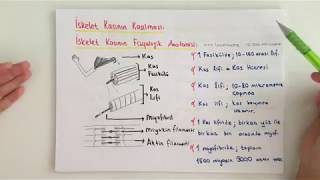 İskelet Kasının Kasılması
İskelet Kasının Fizyolojik Anatomisi
Kas
1 Fasikülde; 10-150 arası lif.
Kas
Fasikülü
Kas lifi = Kas Hücresi
Kas
Lifi
Kas lifi; 10-80 mikrometre
çapında
Kas lifi; kas boyunca
uzanır.
Miyofibril
1 Kas lifinde; birkaç yüz ile
birkaç bin arasında miyof.
Miyozin filamenti
Aktin filamenti
1 miyofibrilde; toplam
1500 miyozin 3000 aktin